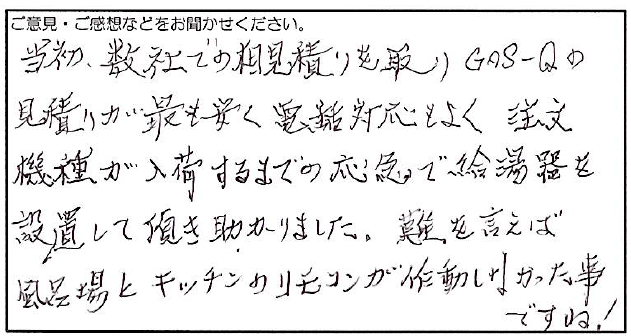 ご意見・ご感想などをお聞かせください。
当初、数社での相見積りを取り GAS-Qの
見積りが最も安く電話対応もよく 注文
機種が入荷するまでの応急で給湯器を
設置して頂き助かりました。難を言えば
風呂場とキッチンのリモコンが作動しなかった事
ですね!